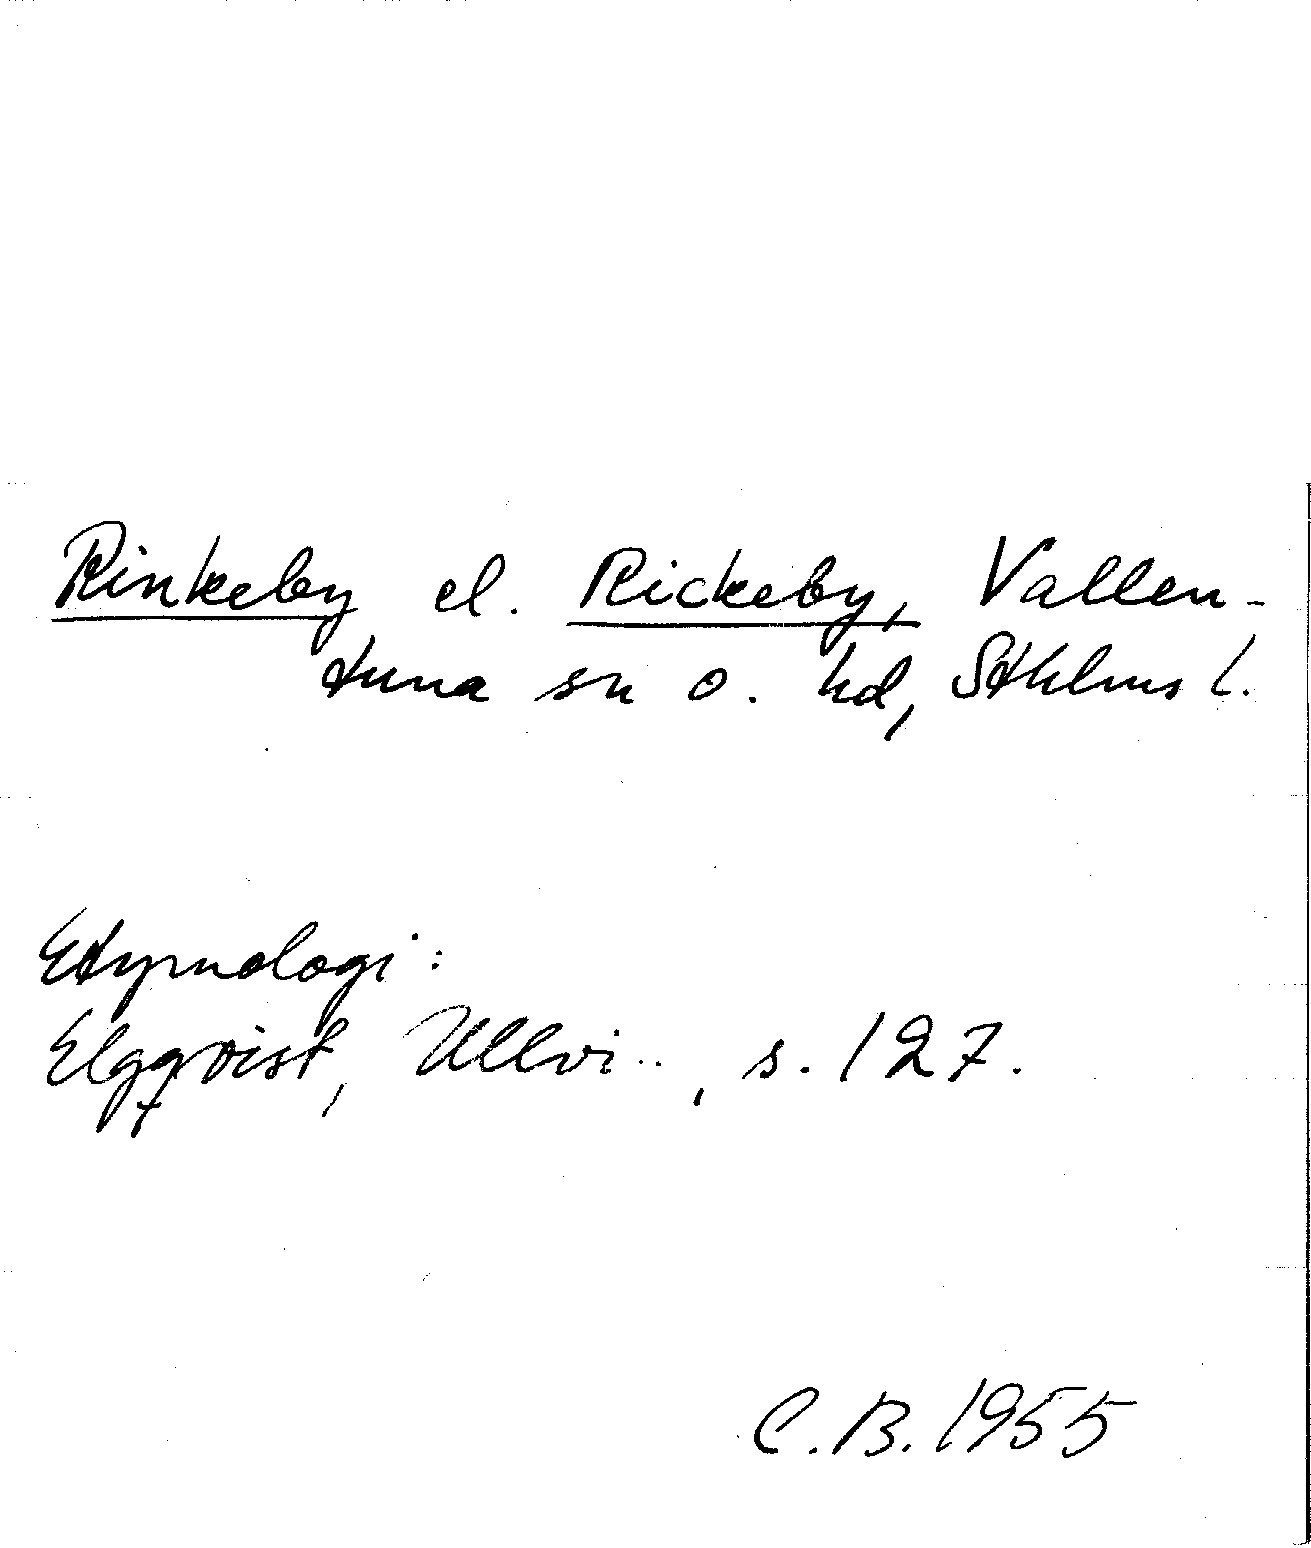 Rinkeby el. Rickeby, Vallen-
tuna sn o. hd, Sthlms l.
Etymologi:
Elgqvist, Ullvi.., s. 127.
C.B. 1955